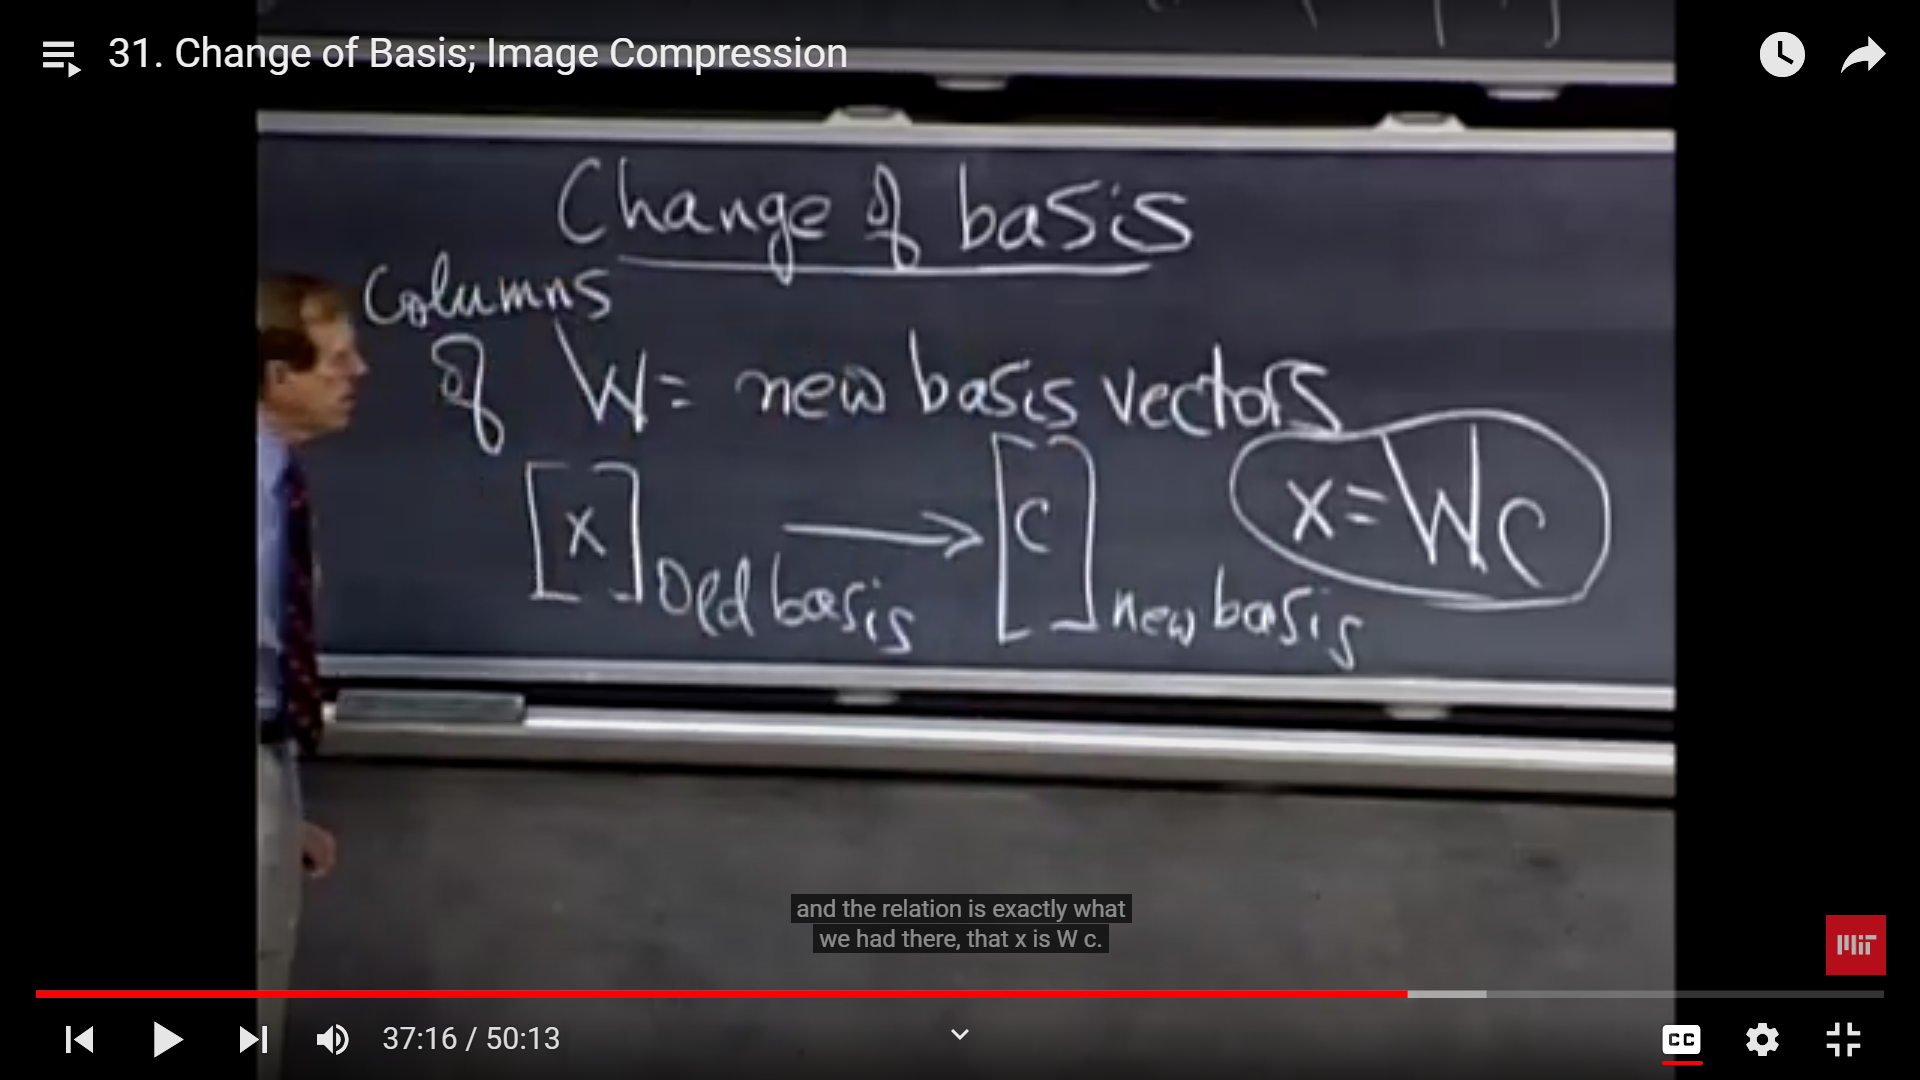 31. Change of Basis; Image Compression
Change of basis
Columns
of W = new basis vectors
[x] old basis → [c] new basis
x = Wc
and the relation is exactly what
we had there, that x is W c.
MIT
37:16 / 50:13
CC